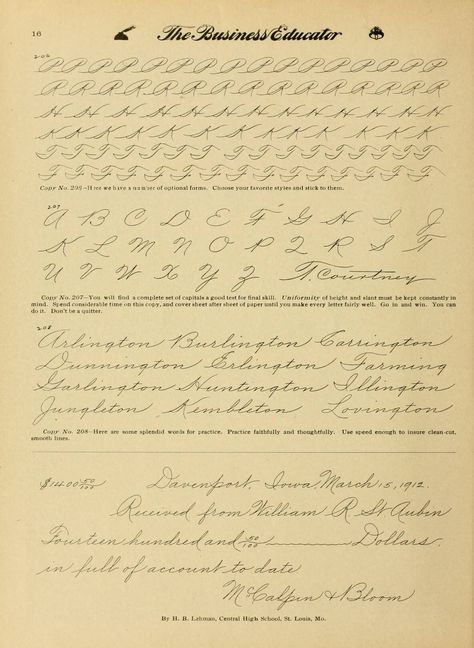 16 The Business Educator
206
P P P P P P P P P P P P P P P P
R R R R R R R R R R R R R R R R
H H H H H H H H H H H H H
K K K K K K K K K K K K K
T T T T T T T T T T T T T T T T
F F F F F F F F F F F F F F F F
Copy No. 206—Here we have a number of optional forms. Choose your favorite styles and stick to them.
207
A B C D E F G H I J
K L M N O P Q R S T
U V W X Y Z T. Courtney
Copy No. 207—You will find a complete set of capitals a good test for final skill. Uniformity of height and slant must be kept constantly in
mind. Spend considerable time on this copy, and cover sheet after sheet of paper until you make every letter fairly well. Go in and win. You can
do it. Don't be a quitter.
208
Arlington Burlington Carrington
Dunnington Erlington Farming
Garlington Huntington Illington
Jungleton Kembleton Lovington
Copy No. 208—Here are some splendid words for practice. Practice faithfully and thoughtfully. Use speed enough to insure clean-cut,
smooth lines.
$1400 50/100 Davenport, Iowa, March 15, 1912.
Received from William R St Aubin
Fourteen hundred and 50/100 Dollars.
in full of account to date
McCalpin & Bloom
By H. B. Lehman, Central High School, St. Louis, Mo.